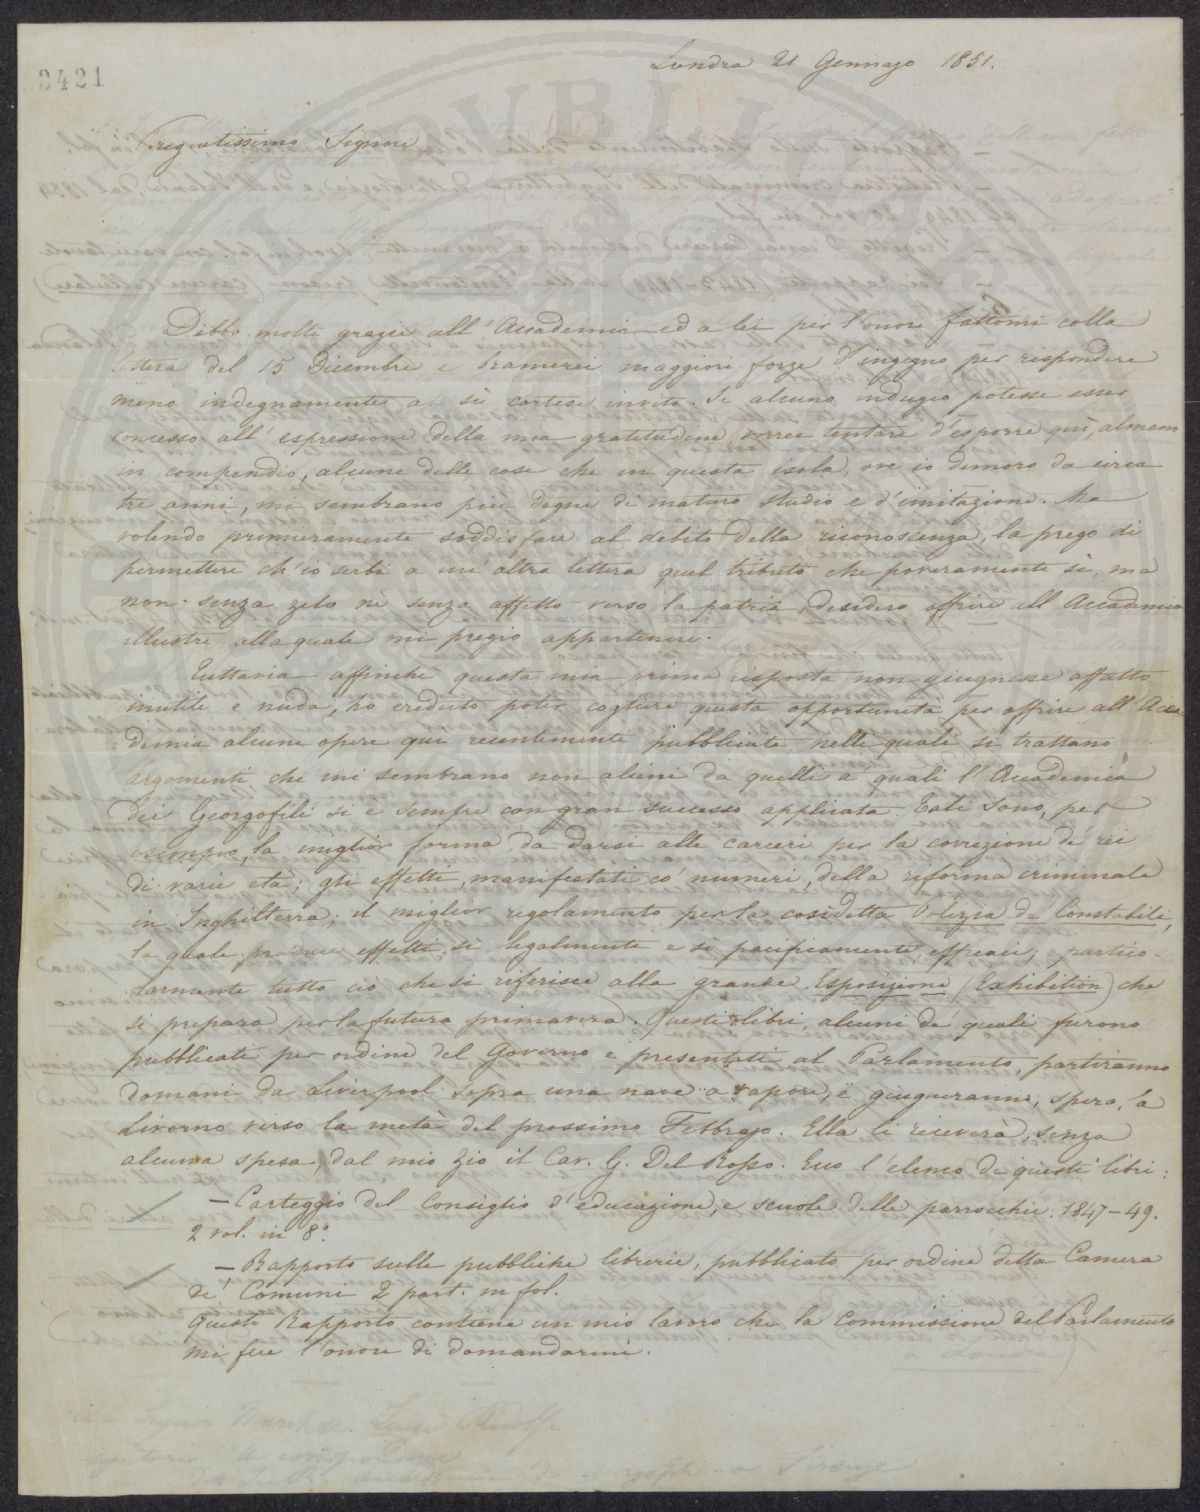 Londra 21 Gennajo 1851.
3421
Pregiatissimo Signore
Debbo molte grazie all'Accademia ed a lei per l'onore fattomi colla
lettera del 15 Dicembre e bramerei maggiori forze d'ingegno per rispondere
meno indegnamente a sì cortese invito. Se alcuno indugio potesse esser
concesso all'espressione della mia gratitudine, vorrei tentare d'esporre quì, almeno
in compendio, alcune delle cose che in questa isola, ove io dimoro da circa
tre anni, mi sembrano più degne di maturo studio e d'imitazione. Ma
volendo primieramente soddisfare al debito della riconoscenza, la prego di
permettere ch'io serbi a un'altra lettera quel tributo che poveramente sì, ma
non senza zelo nè senza affetto verso la patria, desidero offrire all'Accademia
illustre alla quale mi pregio appartenere.
Tuttavia affinchè questa mia prima risposta non giugnesse affatto
inutile e nuda, ho creduto poter cogliere questa opportunità per offrire all'Acca
=demia alcune opere quì recentemente pubblicate nelle quali si trattano
argomenti che mi sembrano non alieni da quelli a quali l'Accademia
dei Georgofili si è sempre con gran successo applicata. Tali sono, per
esempio, la miglior forma da darsi alle carceri per la correzione de' rei
di varie età; gli effetti, manifestati co' numeri, della riforma criminale
in Inghilterra; il miglior regolamento per la cosidetta Polizia da Constabili,
la quale produce effetti sì legalmente e sì pacificamente efficaci, e partico-
larmente tutto ciò che si riferisce alla grande Esposizione (Exhibition) che
si prepara per la futura primavera. Questi libri, alcuni de' quali furono
pubblicati per ordine del Governo e presentati al Parlamento, partiranno
domani da Liverpool sopra una nave a vapore, e giugneranno, spero, a
Livorno verso la metà del prossimo Febbrajo. Ella li riceverà, senza
alcuna spesa, dal mio zio il Cav. G. Del Rosso. Ecco l'elenco di questi libri:
— Carteggio del Consiglio d'educazione, e scuole delle parrocchie. 1847-49.
2 vol. in 8.º
— Rapporto sulle pubbliche librerie, pubblicato per ordine della Camera
de' Comuni 2 part. in fol.
Questo Rapporto contiene un mio lavoro che la Commissione del Parlamento
mi fece l'onore di domandarmi.